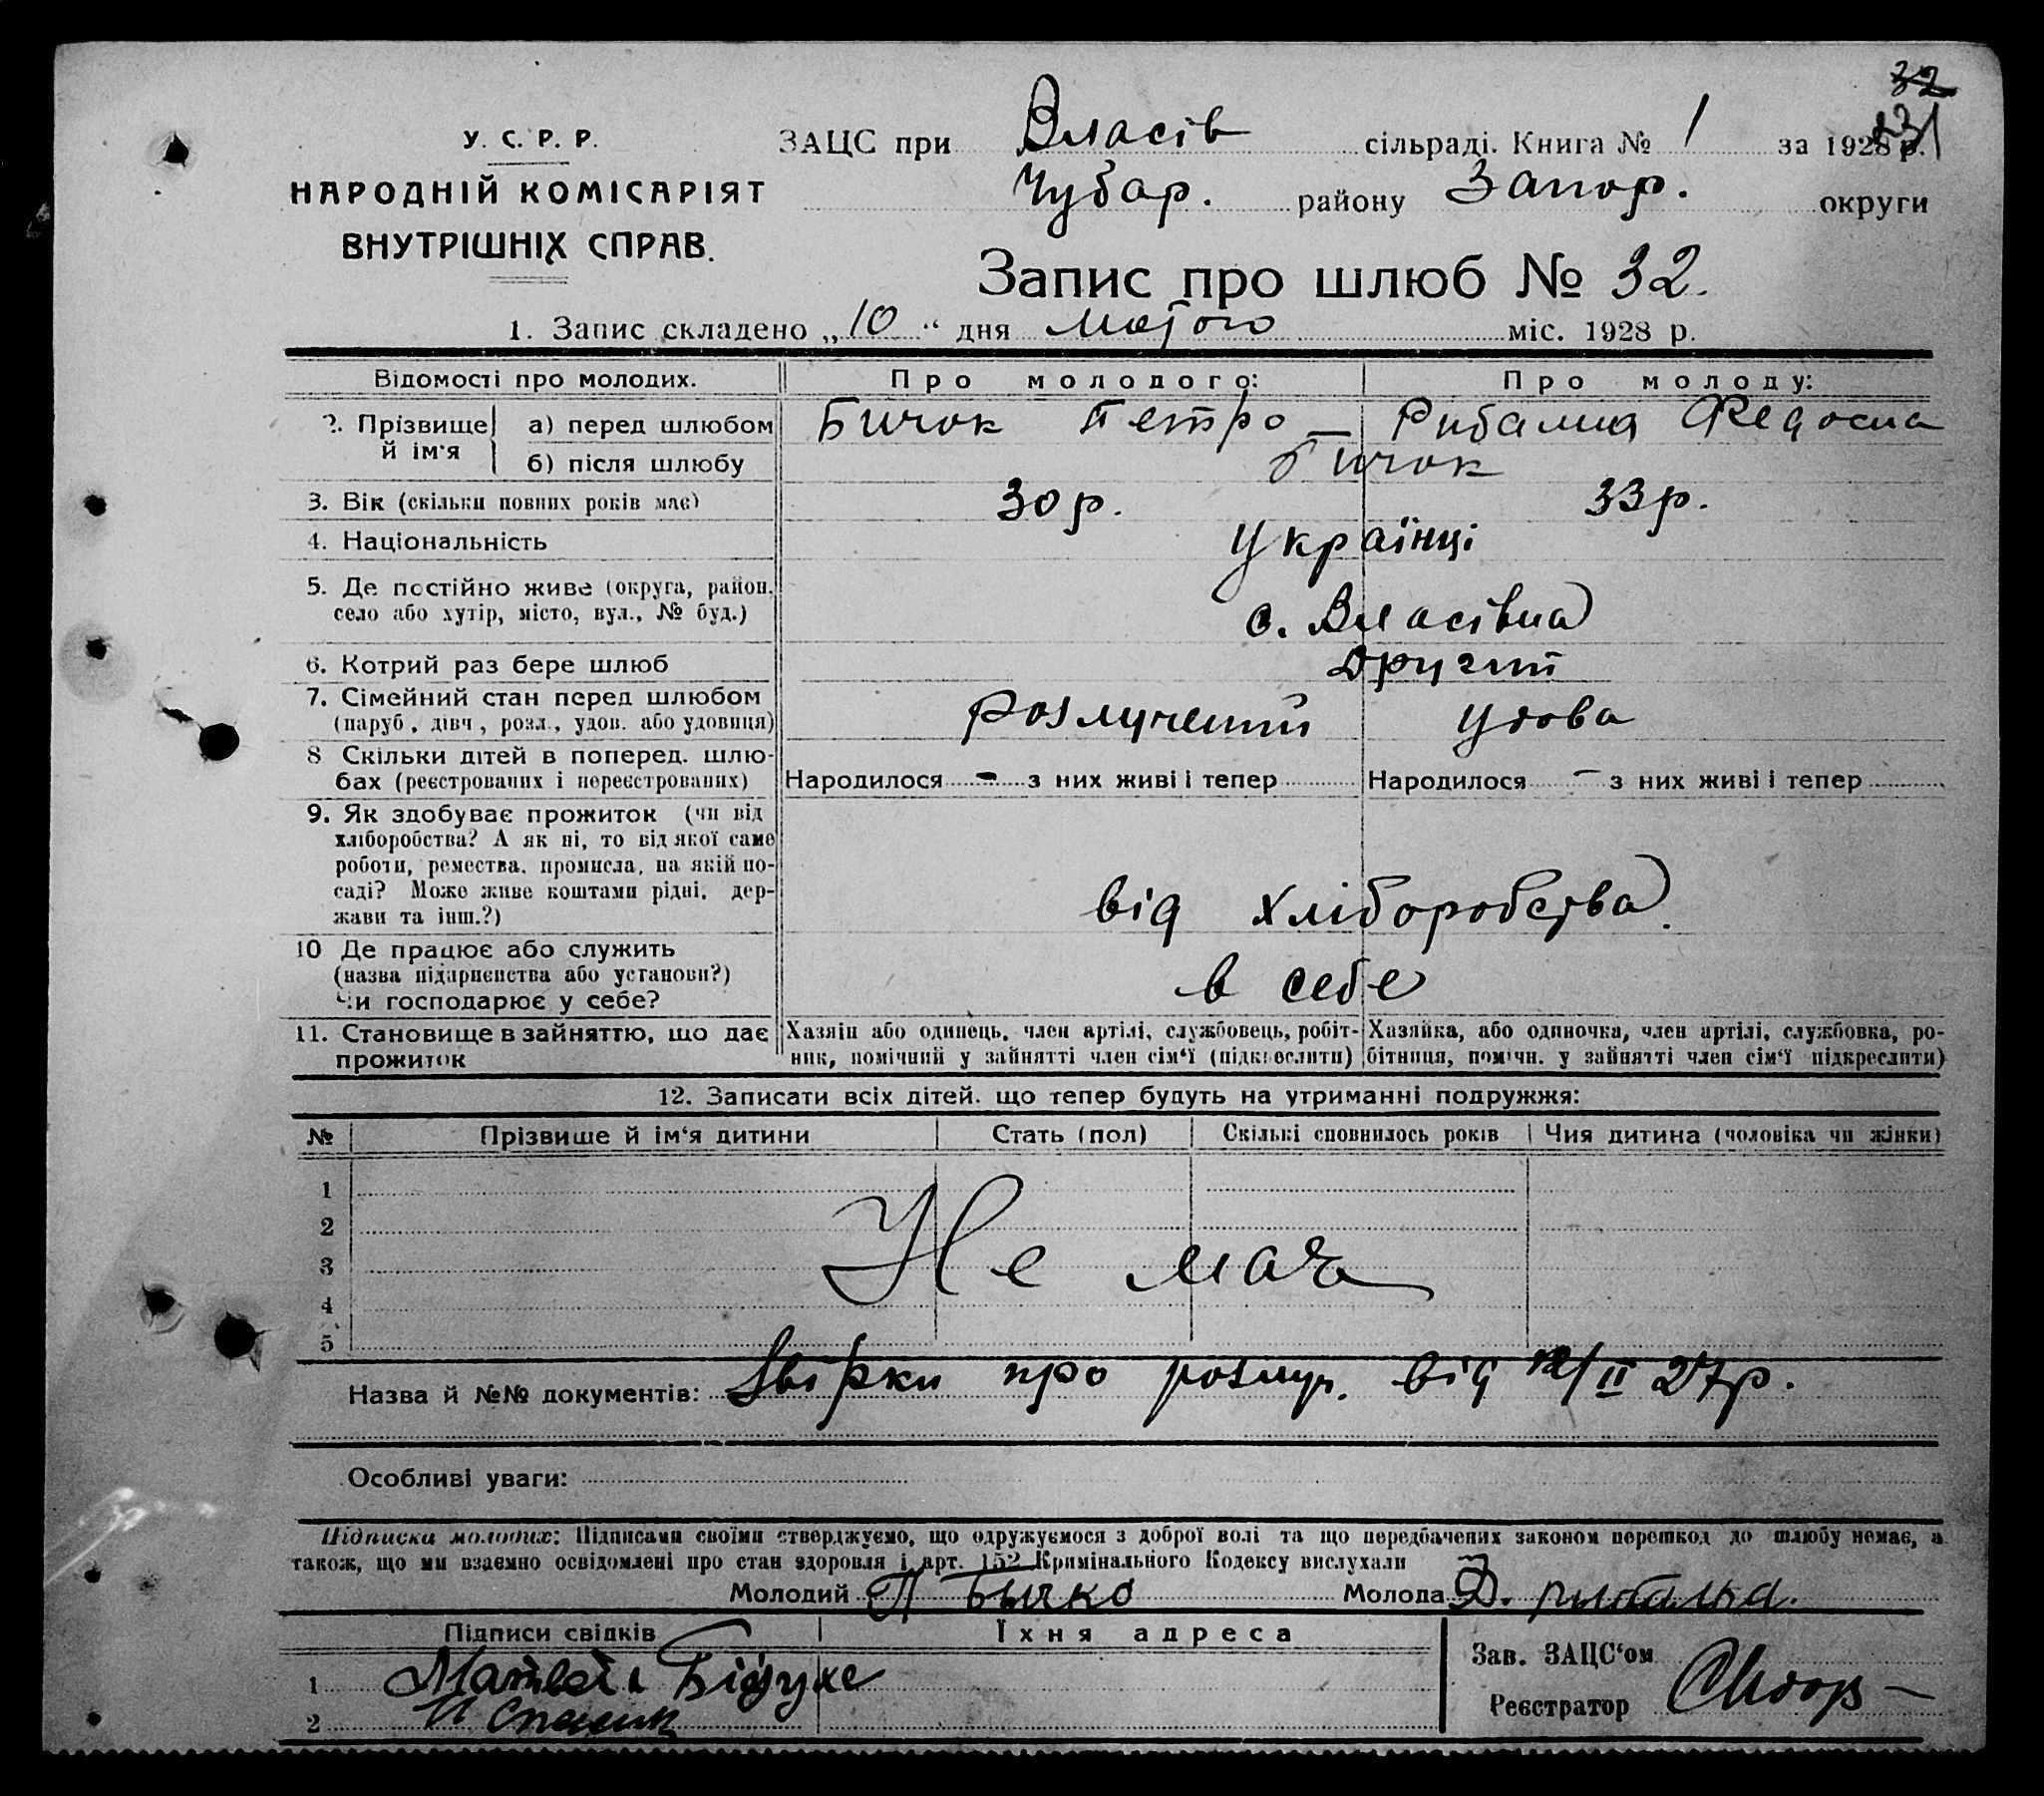 32
231
У. С. Р. Р.
НАРОДНІЙ КОМІСАРІЯТ
ВНУТРІШНІХ СПРАВ.
ЗАЦС при Власів сільраді. Книга № 1 за 1928 р.
Чубар. району Запор. округи
Запис про шлюб № 32.
1. Запис складено „10“ дня лютого міс. 1928 р.
Відомості про молодих. Про молодого: Про молоду:
2. Прізвище й ім'я а) перед шлюбом Бичок Петро — Рибалка Федосия
б) після шлюбу Бичок
3. Вік (скільки повних років має) 30 р. 33 р.
4. Національність Українці
5. Де постійно живе (округа, район,
село або хутір, місто, вул., № буд.) с. Власівка
6. Котрий раз бере шлюб Другий
7. Сімейний стан перед шлюбом
(паруб., дівч., розл., удов. або удовиця) Розлучений Удова
8 Скільки дітей в поперед. шлю-
бах (реєстрованих і нереєстрованих) Народилося - з них живі і тепер Народилося - з них живі і тепер
9. Як здобуває прожиток (чи від
хліборобства? А як ні, то від якої саме
роботи, ремества, промисла, на якій по-
саді? Може живе коштами рідні, дер-
жави та інш.?) від хліборобства.
10 Де працює або служить
(назва підприємства або установи?)
Чи господарює у себе? в себе
11. Становище в зайняттю, що дає
прожиток
Хазяїн або одинець, член артілі, службовець, робіт-
ник, помічний у зайнятті член сім'ї (підкреслити)
Хазяйка, або одиночка, член артілі, службовка, ро-
бітниця, помічн. у зайнятті член сім'ї підкреслити)
12. Записати всіх дітей, що тепер будуть на утриманні подружжя:
№ Прізвище й ім'я дитини Стать (пол) Скількі сповнилось років Чия дитина (чоловіка чи жінки)
1
2
3
4
5
Не має
Назва й №№ документів: про розлуч. від 12/II 27 р.
Особливі уваги:
Підписка молодих: Підписами своїми стверджуємо, що одружуємося з доброї волі та що передбачених законом перешкод до шлюбу немає, а
також, що ми взаємно освідомлені про стан здоровля і арт. 152 Кримінального Кодексу вислухали
Молодий П Бычко Молода Рибалка.
Підписи свідків Їхня адреса
1 Матвій
2
Зав. ЗАЦС'ом
Реєстратор